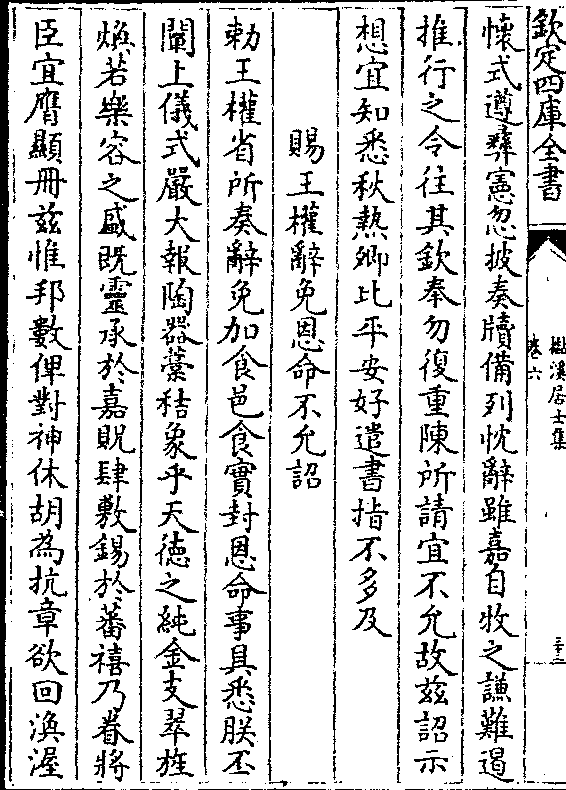 欽定四庫全書
樾溪居士集
卷六
三十二
懷式遵彛憲忽披奏牘備列忱辭雖嘉自牧之謙難遏
推行之令往其欽奉勿復重陳所請宜不允故兹詔示
想宜知悉秋熱卿比平安好遣書指不多及
賜王權辭免恩命不允詔
勅王權省所奏辭免加食邑食實封恩命事具悉朕丕
闡上儀式嚴大報陶器藁秸象乎天德之純金支翠旌
煥若樂容之盛既靈承於嘉貺肆敷錫於蕃禧乃眷將
臣宜膺顯冊兹惟邦數俾對神休胡為抗章欲回渙渥